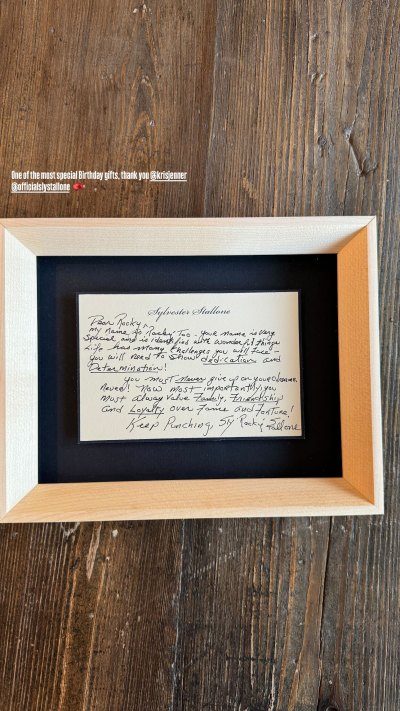 One of the most special Birthday gifts, thank you @krisjenner
@officialslystallone
Sylvester Stallone
Dear Rocky,
My Name is Rocky Too - your name is very
special and is identified with wonderful things
Life has many challenges you will face -
you will need to show dedication and
Determination!
you must never give up on your dreams.
Never! Now most importantly, you
must always value Family, Friendship
and Loyalty over Fame and Fortune!
Keep Punching, Sly Rocky Stallone